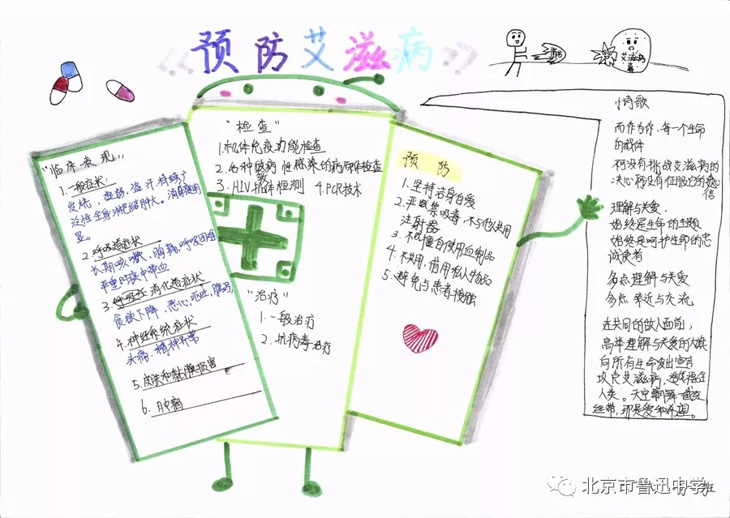 《预防艾滋病》
艾滋病
毒
"临床表现"
1.一般症状
发烧、虚弱、盗汗、持续广
泛性全身淋巴结肿大。
2.呼吸道症状
长期咳嗽、胸痛、呼吸困难
严重时痰中带血
3.消化道症状
食欲下降、恶心、呕吐、腹泻
4.神经系统症状
头痛、精神不常
5.皮肤和黏膜损害
6.肿瘤
"检查"
1.机体免疫力能检查
2.各种致病性感染的病原体检查
3.HIV抗体检测 4.PCR技术
"治疗"
1.一般治疗
2.抗病毒治疗
预防
1.坚持洁身自爱
2.严禁吸毒,不与他人共用
注射器
3.不擅自使用血制品
4.不共用、借用私人物品
5.避免与患者接触
诗歌
而作为你,每一个生命
的载体
祢没有挑战艾滋病的
决心祢没有征服它的信
理解与关爱,
始终是生命的主题
始终是呵护生命的忠
诚使者
多点理解与关爱
多点亲近与交流
在共同的敌人面前,
高举理解与关爱的大旗
向所有生命发出宣言
攻克艾滋病,造福全
人类。
纽带,那是爱和希望。
北京市鲁迅中学
班